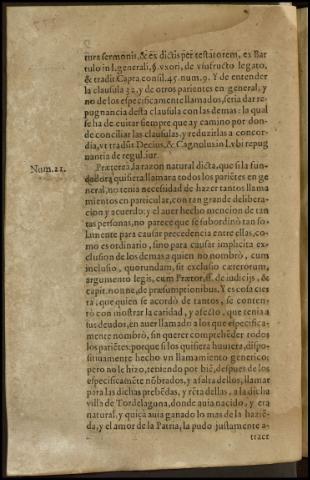 tura sermonis, & ex dictis per testatorem, ex Bar
tulo in l. generali, §. vxori, de vsufructo legato,
& tradit Capra consil. 45. num. 9. Y de entender
la clausula 32. y de otros parientes en general, y
no de los especificamente llamados, seria dar re-
pugnancia desta clausula con las demas: la qual
se ha de euitar siempre que ay camino por don-
de conciliar las clausulas, y reduzirlas a concor-
dia, vt tradũt Decius, & Cagnolus in l. vbi repug
nantia de regul. iur.
Num. 21. Præterea, la razon natural dicta, que si la fun-
dadora quisiera llamara todos los pariẽtes en ge
neral, no tenia necesidad de hazer tantos llama
mientos en particular, con tan grande delibera-
cion y acuerdo; y el auer hecho mencion de tan
tas personas, no parece que se subordinò tan so-
lamente para causar precedencia entre ellas, co-
mo es ordinario, sino para causar implicita ex-
clusion de los demas a quien no nombrò, cum
inclusio, quorundam, sit exclusio cæterorum,
argumento legis, cum Prætor, ff. de iudicijs, &
capit. nonne, de præsumptionibus. Y es cosa cier
ta, que quien se acordò de tantos, se conten-
tò con mostrar la caridad, y afecto, que tenia a
sus deudos, en auer llamado a los que especifica-
mente nombrò, sin querer comprehẽder todos
los pariẽtes: porque si los quisiera huuiera, dispo-
sitiuamente hecho vn llamamiento generico;
pero no le hizo, teniendo por biẽ, despues de los
especificamẽte nõbrados, y a falta dellos, llamar
para las dichas prebẽdas, y rẽta dellas, a la dicha
villa de Tordelaguna, donde auia nacido, y era
natural, y quiça auia ganado lo mas de la haziẽ-
da, y el amor de la Patria, la pudo justamente a-
traer